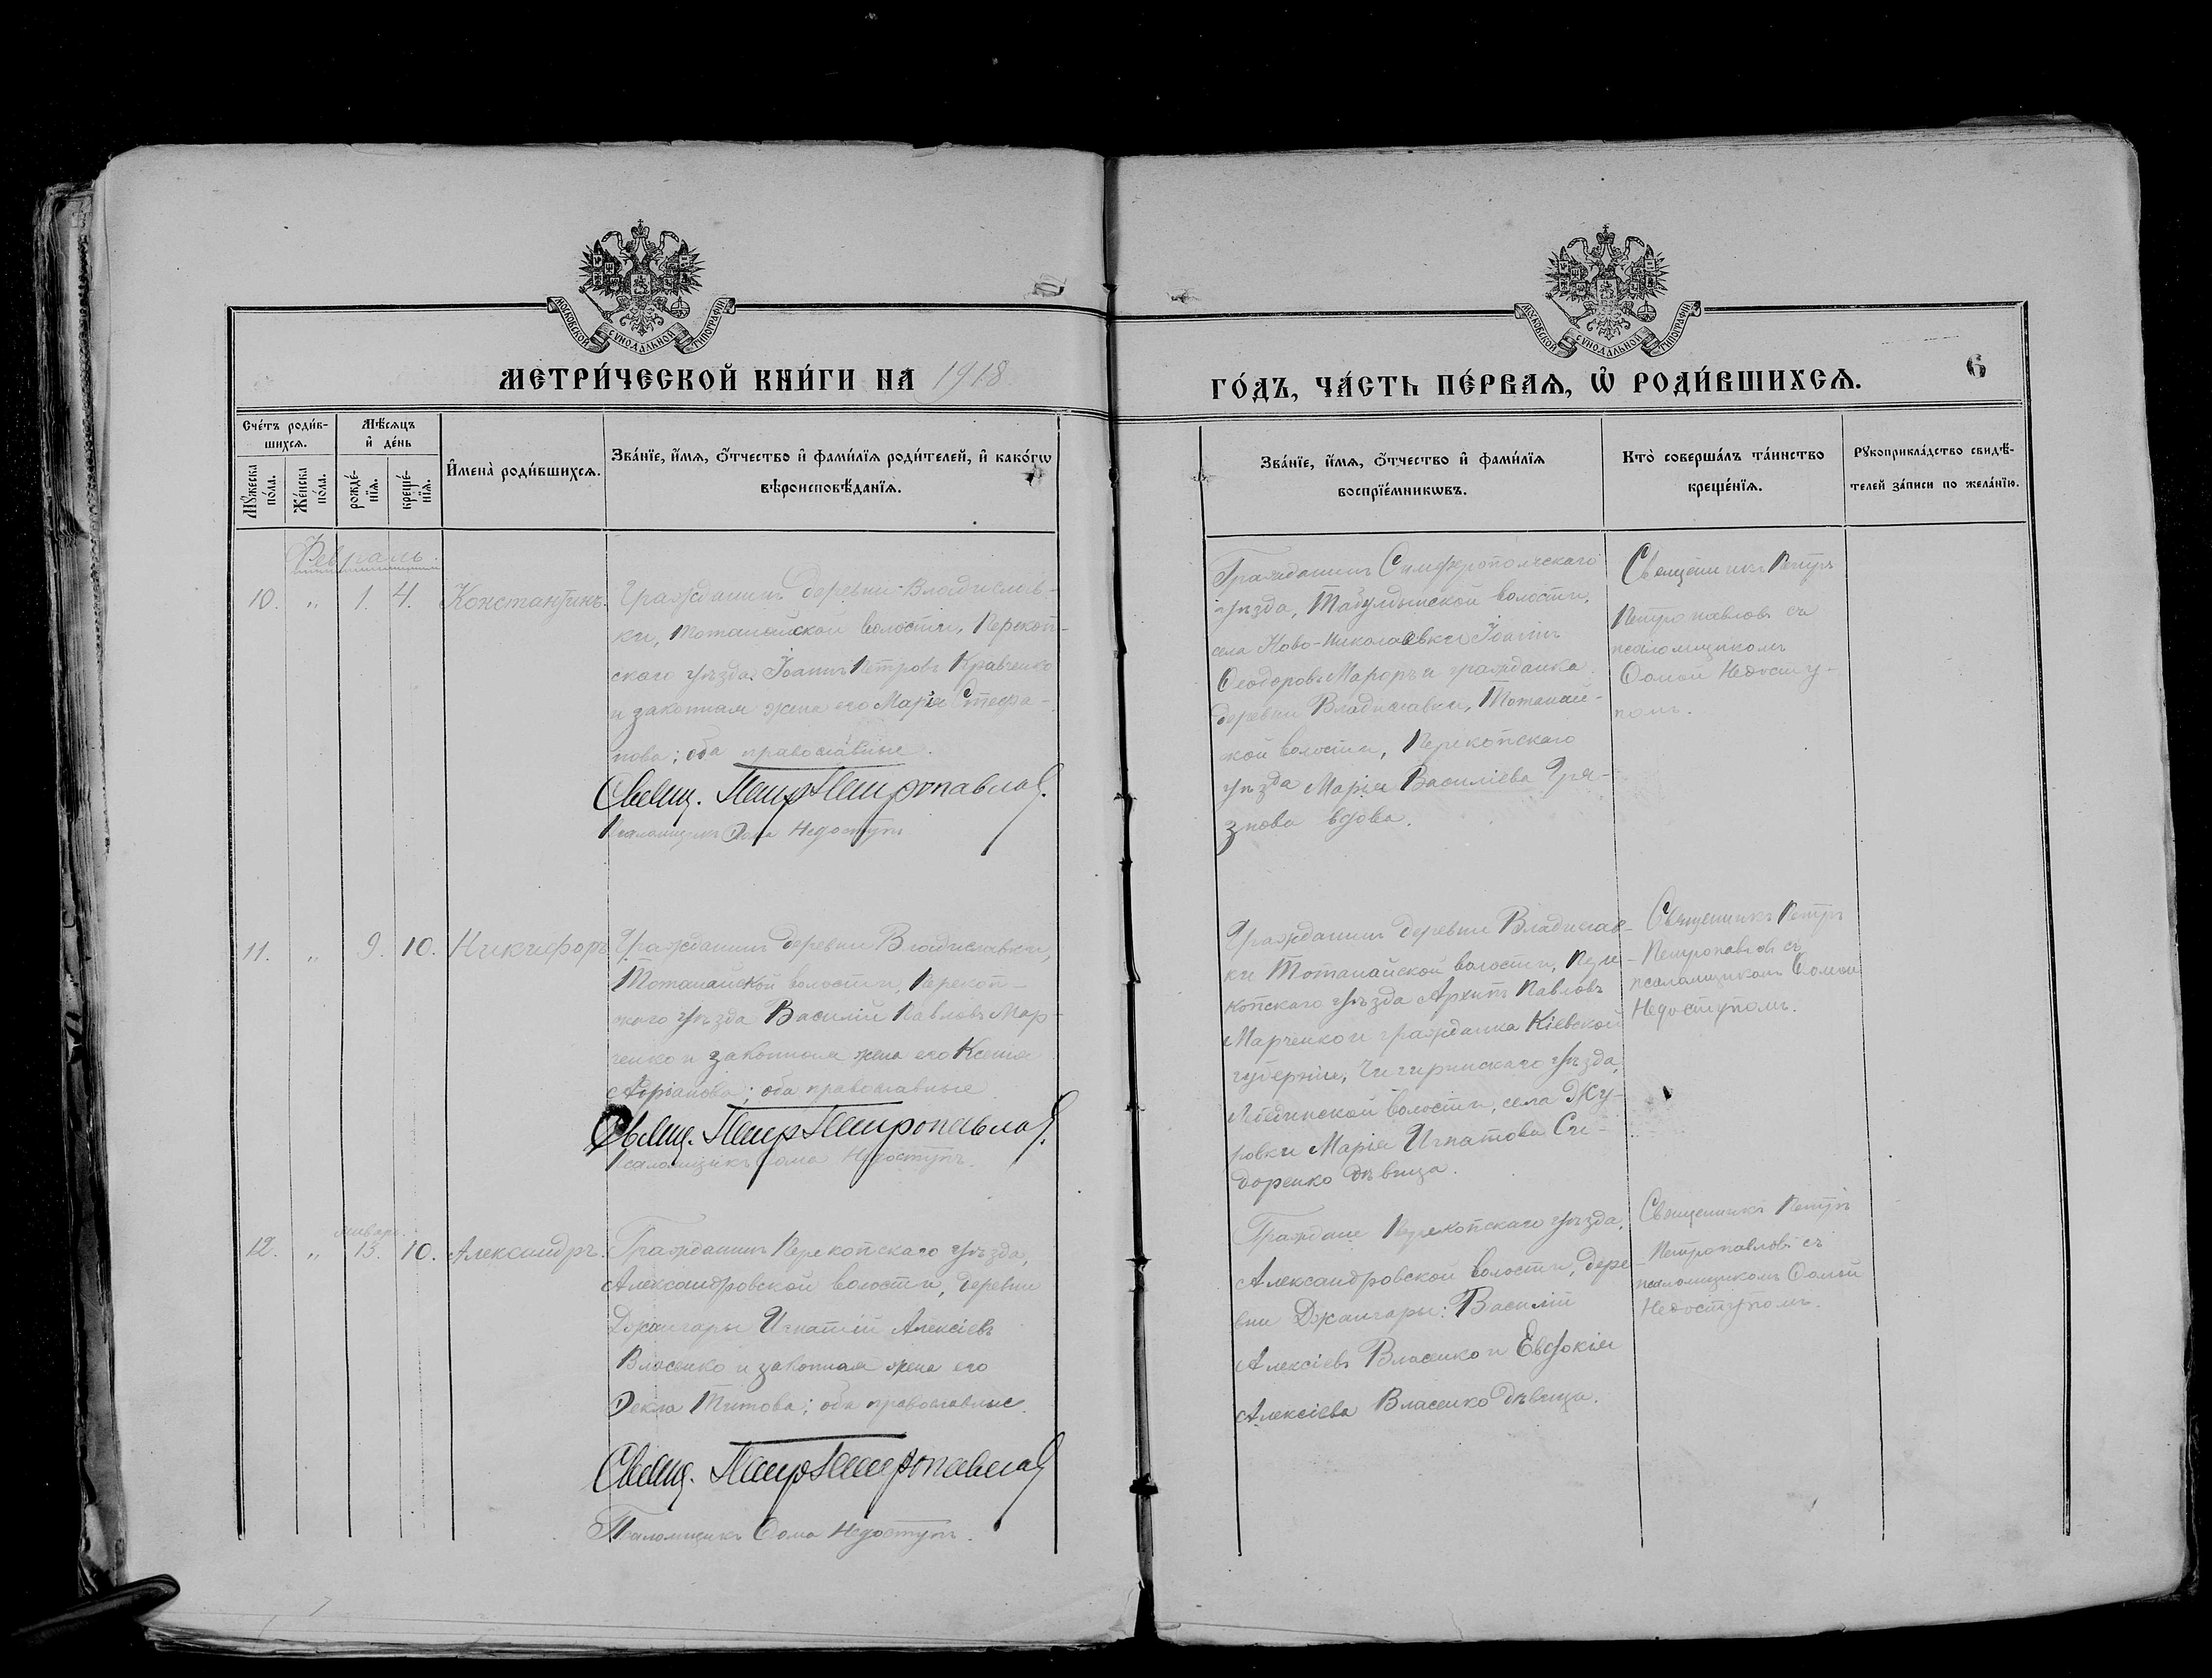 МОСКОВСКОЙ СУНОДАЛЬНОЙ ТИПОГРАФІИ
МОСКОВСКОЙ СУНОДАЛЬНОЙ ТИПОГРАФІИ
МЕТРИ́ЧЕСКОЙ КНИ́ГИ НА 1918
ГО́ДЪ, ЧА́СТЬ ПЕ́РВАѦ, Ѡ РОДИ́ВШИХСѦ.
6
Сче́тъ роди́в-
шихсѧ.
Мꙋ́жеска по́ла.
Же́нска по́ла.
Мѣ́сѧцъ
и҆ де́нь
рожде́-нїѧ.
креще́-нїѧ.
И҆мена̀ роди́вшихсѧ.
Зва́нїе, и҆́мѧ, ѻ҆́тчество и҆ фами́лїѧ роди́телей, и҆ како́гѡ
вѣроисповѣ́данїѧ.
Зва́нїе, и҆́мѧ, ѻ҆́тчество и҆ фами́лїѧ
воспрїе́мникѡвъ.
Кто̀ соверша́лъ та́инство
креще́нїѧ.
Рꙋкоприкла́дство свидѣ́-
телей за́писи по жела́нїю.
Февраль.
10. " 1. 4. Константинъ.
Гражданинъ деревни Владислав-
ки, Тотанайской волости, Перекоп-
скаго уѣзда Іоаннъ Петровъ Кравченко
и законная жена его Марія Стефа-
нова; оба православные.
Свящ. Петр Петропавлов.
Псаломщикъ Ѳома Недоступъ
Гражданинъ Симферопольскаго
уѣзда, Табулдинской волости,
села Ново-Николаевки Іоаннъ
Ѳеодоровъ и гражданка
деревни Владиславки, Тотанай-
ской волости, Перекопскаго
уѣзда Марія Василіева Гря-
знова вдова.
Священникъ Петръ
Петропавловъ съ
псаломщикомъ
Ѳомой Недосту-
помъ.
11. " 9. 10. Никифоръ
Гражданинъ деревни Владиславки,
Тотанайской волости, Перекоп-
скаго уѣзда Василій Павловъ Мар-
ченко и законная жена его Ксенія
Адріанова; оба православные
Свящ. Петр Петропавлов.
Псаломщикъ Ѳома Недоступъ.
Гражданинъ деревни Владислав-
ки Тотанайской волости, Пере-
копскаго уѣзда Архипъ Павловъ
Марченко и гражданка Кіевской
губерніи, Чигиринскаго уѣзда,
Лебединской волости, села Жу-
ровки Марія Игнатова Си-
доренко дѣвица.
Священникъ Петръ
Петропавловъ съ
псаломщикомъ Ѳомой
Недоступомъ.
январь.
12. " 13. 10. Александръ.
Гражданинъ Перекопскаго уѣзда,
Александровской волости, деревни
Джангары Игнатій Алексіевъ
Власенко и законная жена его
Ѳекла Титова; оба православные.
Свящ. Петр Петропавлов
Псаломщикъ Ѳома Недоступъ.
Граждане Перекопскаго уѣзда,
Александровской волости, дере-
вни Джангары: Василій
Алексіевъ Власенко и Евдокія
Алексіева Власенко дѣвица.
Священникъ Петръ
Петропавловъ съ
псаломщикомъ Ѳомой
Недоступомъ.